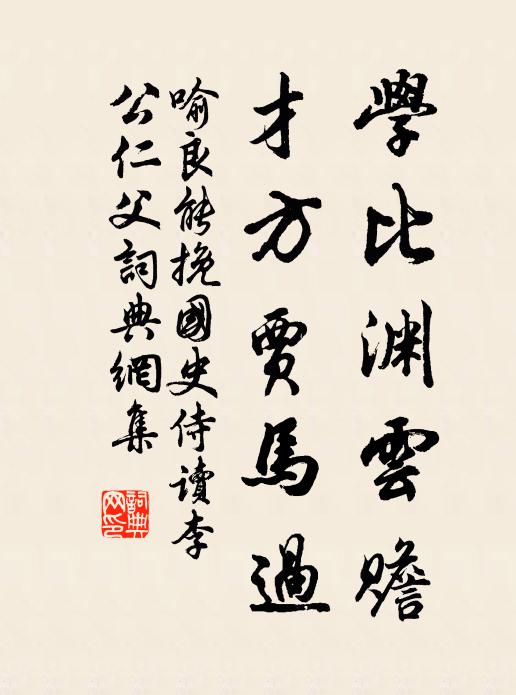 學比渊雲贍
才方賈馬過
喻良能挽國史侍讀李
公仁父詞典網集
詞典網印